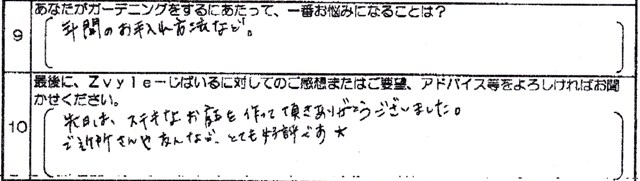 9
あなたがガーデニングをするにあたって、一番お悩みになることは？
年間のお手入れ方法など。
10
最後に、Zvyle－じばいるに対してのご感想またはご要望、アドバイス等をよろしければお聞
かせください。
先日は、ステキなお庭を作って頂きありがとうございました。
ご近所さんや友人などに、とても好評です★